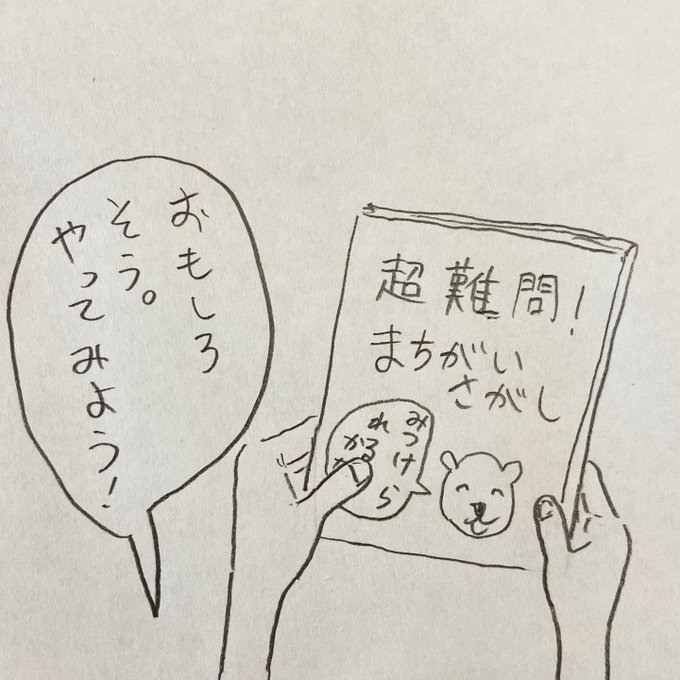 超難問!
まちがい
さがし
みつけら
れる
か
おもしろ
そう。
やってみよう!